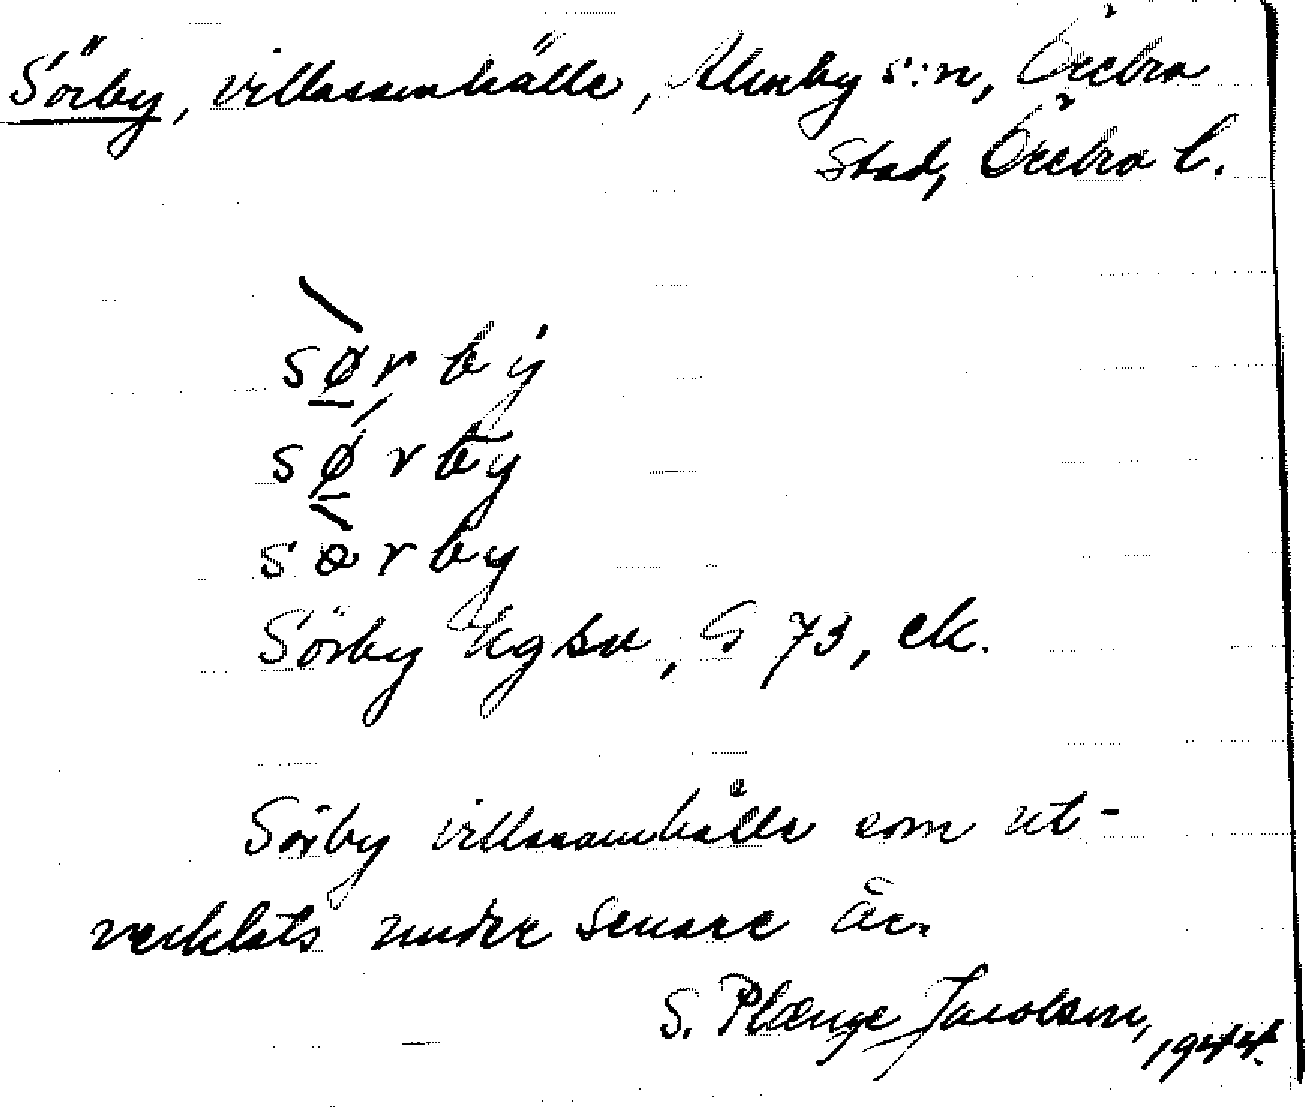 Sörby, villasamhälle, Almby s:n, Örebro
Stad, Örebro l.
sø̱̀r by
sǿ̱r by
sø̀r by
Sörby Egbn, G 73, ek.
Sörby villasamhälle som ut-
vecklats under senare år.
S. Plænge Jacobson, 1944.